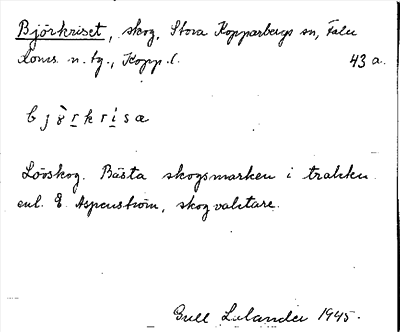 Björkriset, skog, Stora Kopparbergs sn, Falu
Doms. n. tg., Kopp. l. 43 a.
bjö̀rkrisa
Lövskog. Bästa skogsmarken i trakten
enl. E. Aspenström, skogvaktare.
Gull Lelander 1945.